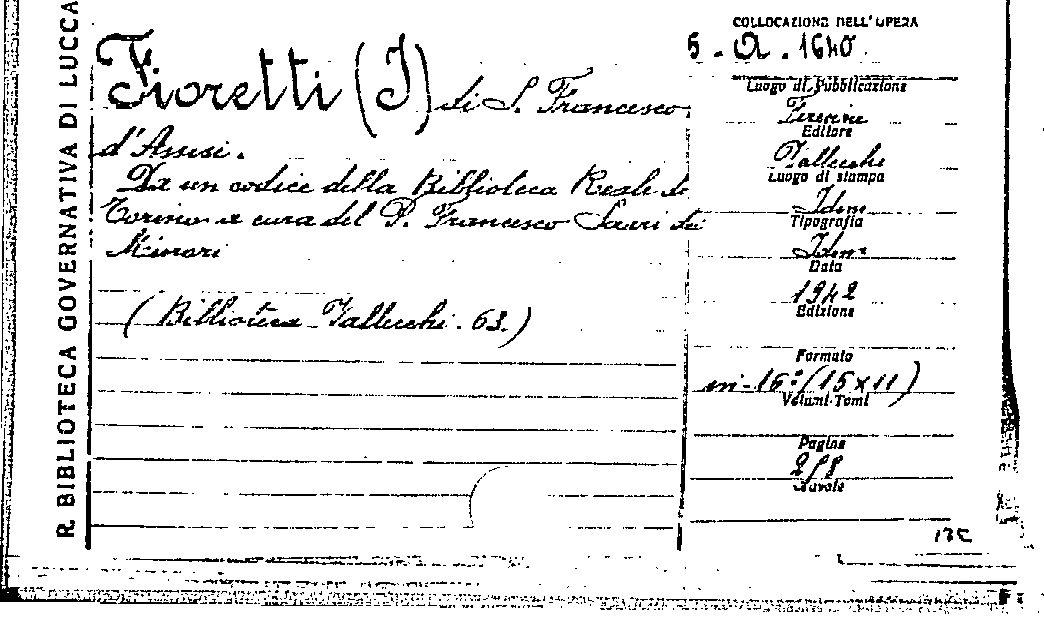 R. BIBLIOTECA GOVERNATIVA DI LUCCA
Fioretti (I) di S. Francesco
d'Assisi.
Da un codice della Biblioteca Reale di
Torino a cura del P. Francesco Sarri dei
Minori
(Biblioteca Vallecchi. 63.)
COLLOCAZIONE DELL'OPERA
5 - Q. - 1640.
Luogo di Pubblicazione
Firenze
Editore
Vallecchi
Luogo di stampa
Idem
Tipografia
Idem
Data
1942
Edizione
Formato
in-16° (15x11)
Volumi-Tomi
Pagine
Tavole